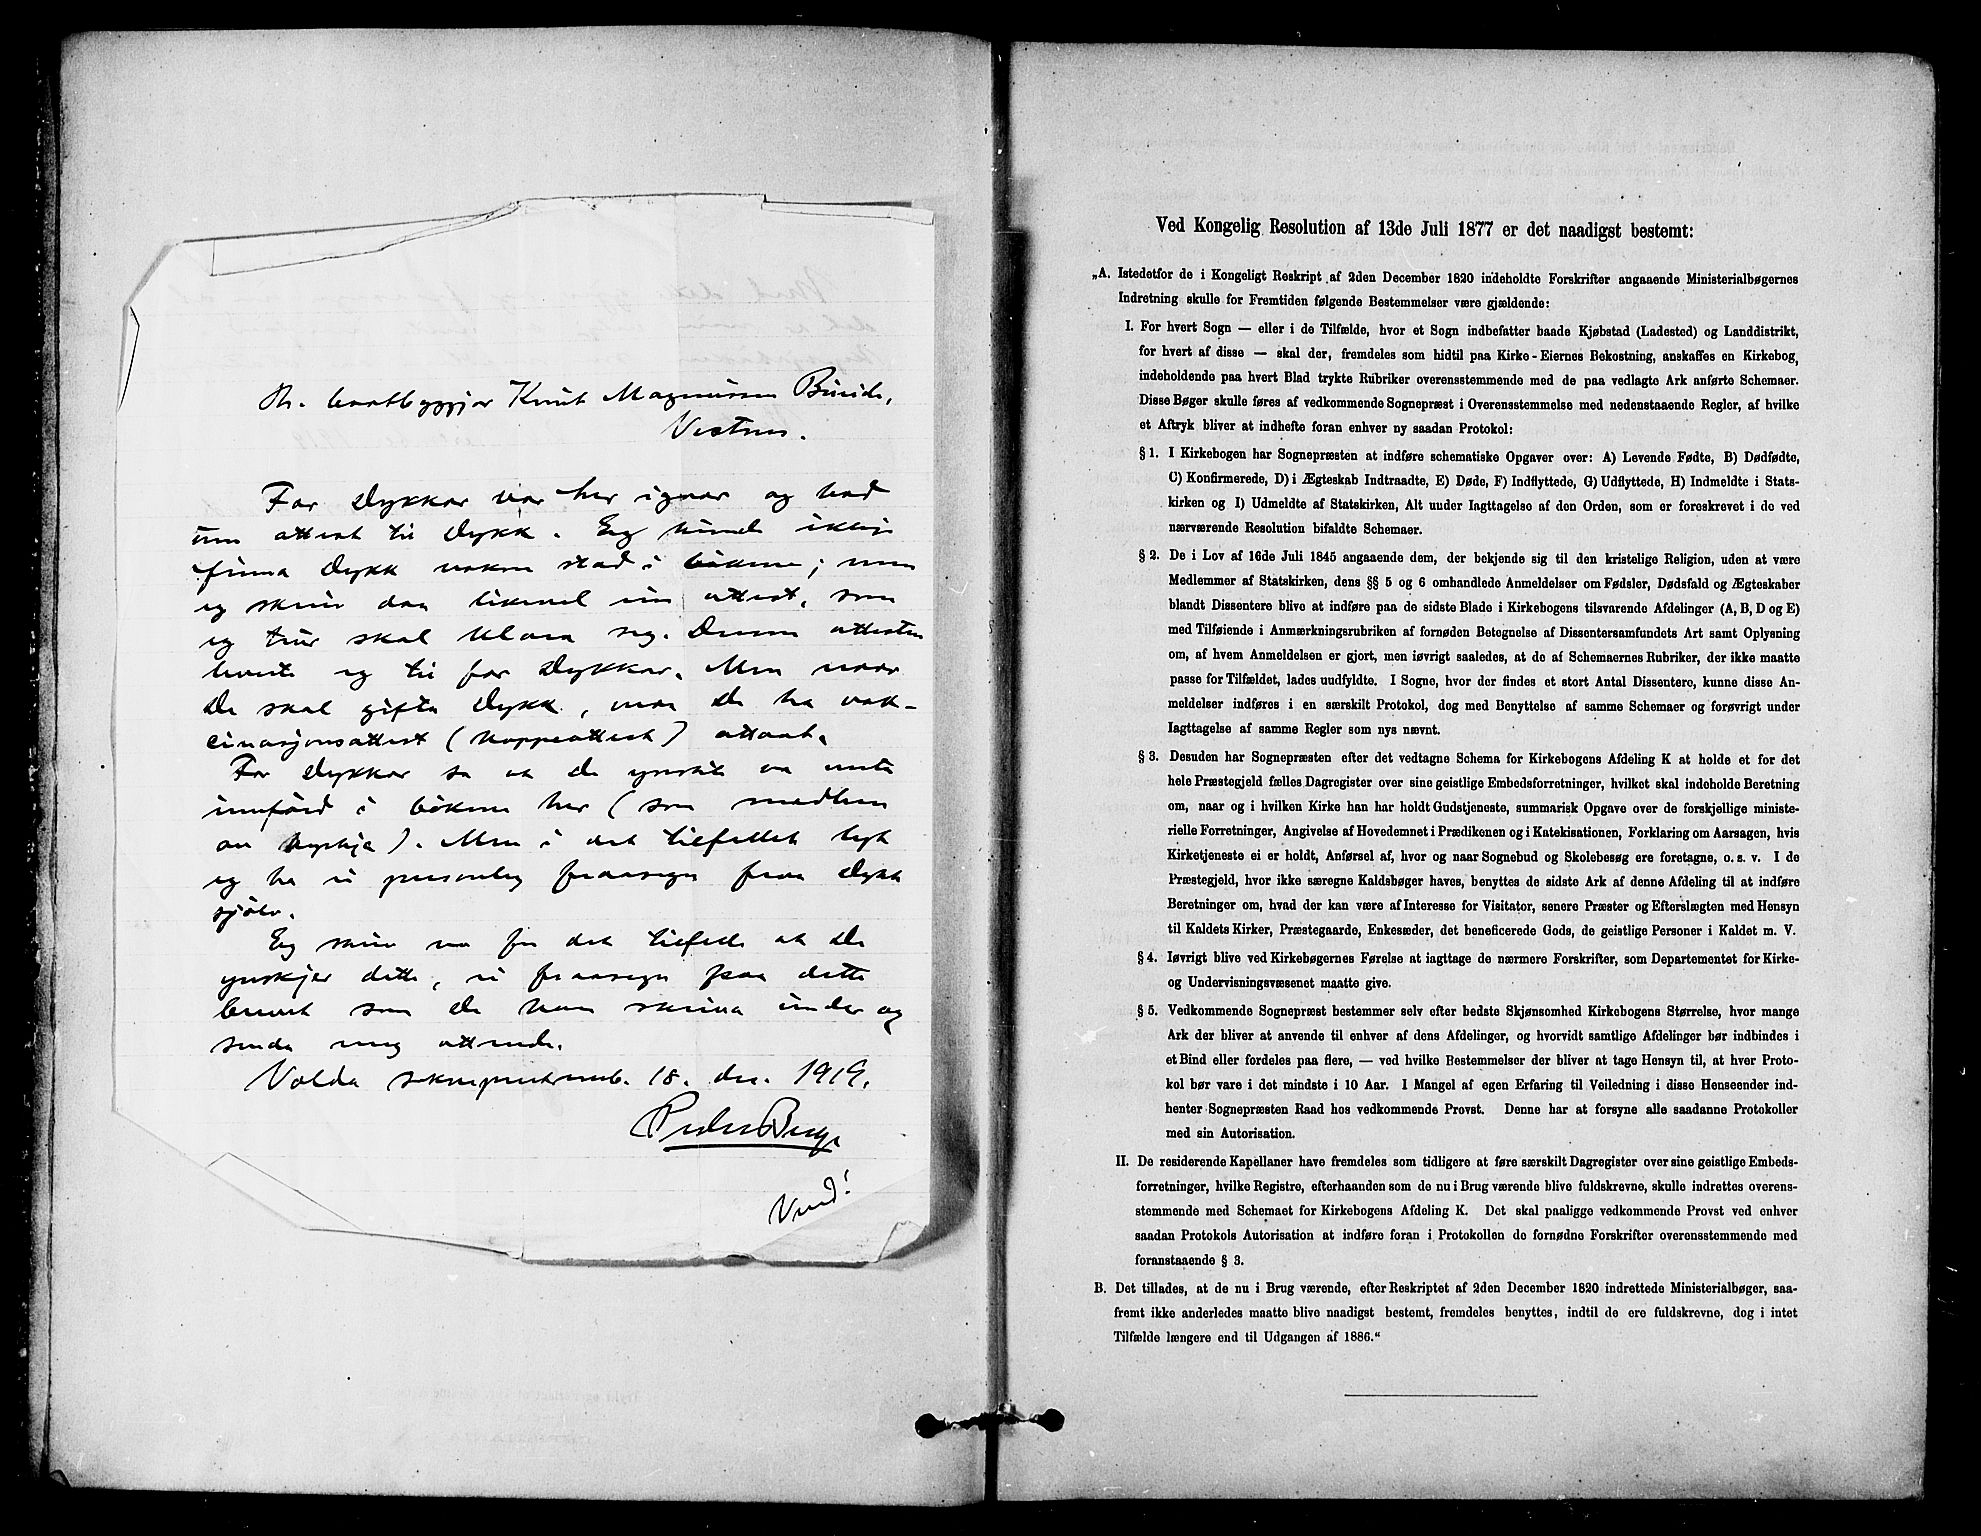 Hr. baatbyggjar Knut Magnussen Buude,
Vestnes.
Far Dykkar var her igaar og bad
um attest til Dykk. Eg kunde ikkje
finna Dykk nokon stad i bökene; men
eg skriv daa likevel ein attest, som
eg trur skal klara seg. Denne attesten
leverte eg til far Dykkar. Men naar
De skal gifta Dykk, maa De ha vak-
cinasjonsattest (koppeattest) attaat.
Far Dykkar sa at De ynskte aa verta
innförd i bökene her (som medlem
av kyrkja). Men i det tilfellet lyt
eg ha ei personleg fraasegn fraa Dykk
sjölv.
Eg skriv no for det tilfelle at De
ynskjer dette, ei fraasegn paa dette
brevet som De kan skriva under og
senda meg attende.
Volda sokneprestemb. 18. des. 1919.
Peder Berge
Vend!
Ved Kongelig Resolution af 13de Juli 1877 er det naadigst bestemt:
„A. Istedetfor de i Kongeligt Reskript af 2den December 1820 indeholdte Forskrifter angaaende Ministerialbøgernes
Indretning skulle for Fremtiden følgende Bestemmelser være gjældende:
I. For hvert Sogn — eller i de Tilfælde, hvor et Sogn indbefatter baade Kjøbstad (Ladested) og Landdistrikt,
for hvert af disse — skal der, fremdeles som hidtil paa Kirke-Eiernes Bekostning, anskaffes en Kirkebog,
indeholdende paa hvert Blad trykte Rubriker overensstemmende med de paa vedlagte Ark anførte Schemaer.
Disse Bøger skulle føres af vedkommende Sognepræst i Overensstemmelse med nedenstaaende Regler, af hvilke
et Aftryk bliver at indhefte foran enhver ny saadan Protokol:
§ 1. I Kirkebogen har Sognepræsten at indføre schematiske Opgaver over: A) Levende Fødte, B) Dødfødte,
C) Konfirmerede, D) i Ægteskab Indtraadte, E) Døde, F) Indflyttede, G) Udflyttede, H) Indmeldte i Stats-
kirken og I) Udmeldte af Statskirken, Alt under Iagttagelse af den Orden, som er foreskrevet i de ved
nærværende Resolution bifaldte Schemaer.
§ 2. De i Lov af 16de Juli 1845 angaaende dem, der bekjende sig til den kristelige Religion, uden at være
Medlemmer af Statskirken, dens §§ 5 og 6 omhandlede Anmeldelser om Fødsler, Dødsfald og Ægteskaber
blandt Dissentere blive at indføre paa de sidste Blade i Kirkebogens tilsvarende Afdelinger (A, B, D og E)
med Tilføiende i Anmærkningsrubriken af fornøden Betegnelse af Dissentersamfundets Art samt Oplysning
om, af hvem Anmeldelsen er gjort, men iøvrigt saaledes, at de af Schemaernes Rubriker, der ikke maatte
passe for Tilfældet, lades uudfyldte. I Sogne, hvor der findes et stort Antal Dissentere, kunne disse An-
meldelser indføres i en særskilt Protokol, dog med Benyttelse af samme Schemaer og forøvrigt under
Iagttagelse af samme Regler som nys nævnt.
§ 3. Desuden har Sognepræsten efter det vedtagne Schema for Kirkebogens Afdeling K at holde et for det
hele Præstegjeld fælles Dagregister over sine geistlige Embedsforretninger, hvilket skal indeholde Beretning
om, naar og i hvilken Kirke han har holdt Gudstjeneste, summarisk Opgave over de forskjellige ministe-
rielle Forretninger, Angivelse af Hovedemnet i Prædikenen og i Katekisationen, Forklaring om Aarsagen, hvis
Kirketjeneste ei er holdt, Anførsel af, hvor og naar Sognebud og Skolebesøg ere foretagne, o. s. v. I de
Præstegjeld, hvor ikke særegne Kaldsbøger haves, benyttes de sidste Ark af denne Afdeling til at indføre
Beretninger om, hvad der kan være af Interesse for Visitator, senere Præster og Efterslægten med Hensyn
til Kaldets Kirker, Præstegaarde, Enkesæder, det beneficerede Gods, de geistlige Personer i Kaldet m. V.
§ 4. Iøvrigt blive ved Kirkebøgernes Førelse at iagttage de nærmere Forskrifter, som Departementet for Kirke-
og Undervisningsvæsenet maatte give.
§ 5. Vedkommende Sognepræst bestemmer selv efter bedste Skjønsomhed Kirkebogens Størrelse, hvor mange
Ark der bliver at anvende til enhver af dens Afdelinger, og hvorvidt samtlige Afdelinger bør indbindes i
et Bind eller fordeles paa flere, — ved hvilke Bestemmelser der bliver at tage Hensyn til, at hver Proto-
kol bør vare i det mindste i 10 Aar. I Mangel af egen Erfaring til Veiledning i disse Henseender ind-
henter Sognepræsten Raad hos vedkommende Provst. Denne har at forsyne alle saadanne Protokoller
med sin Autorisation.
II. De residerende Kapellaner have fremdeles som tidligere at føre særskilt Dagregister over sine geistlige Embeds-
forretninger, hvilke Registre, efterhaanden som de nu i Brug værende blive fuldskrevne, skulle indrettes overens-
stemmende med Schemaet for Kirkebogens Afdeling K. Det skal paaligge vedkommende Provst ved enhver
saadan Protokols Autorisation at indføre foran i Protokollen de fornødne Forskrifter overensstemmende med
foranstaaende § 3.
B. Det tillades, at de nu i Brug værende, efter Reskriptet af 2den December 1820 indrettede Ministerialbøger, saa-
fremt ikke anderledes maatte blive naadigst bestemt, fremdeles benyttes, indtil de ere fuldskrevne, dog i intet
Tilfælde længere end til Udgangen af 1886.“